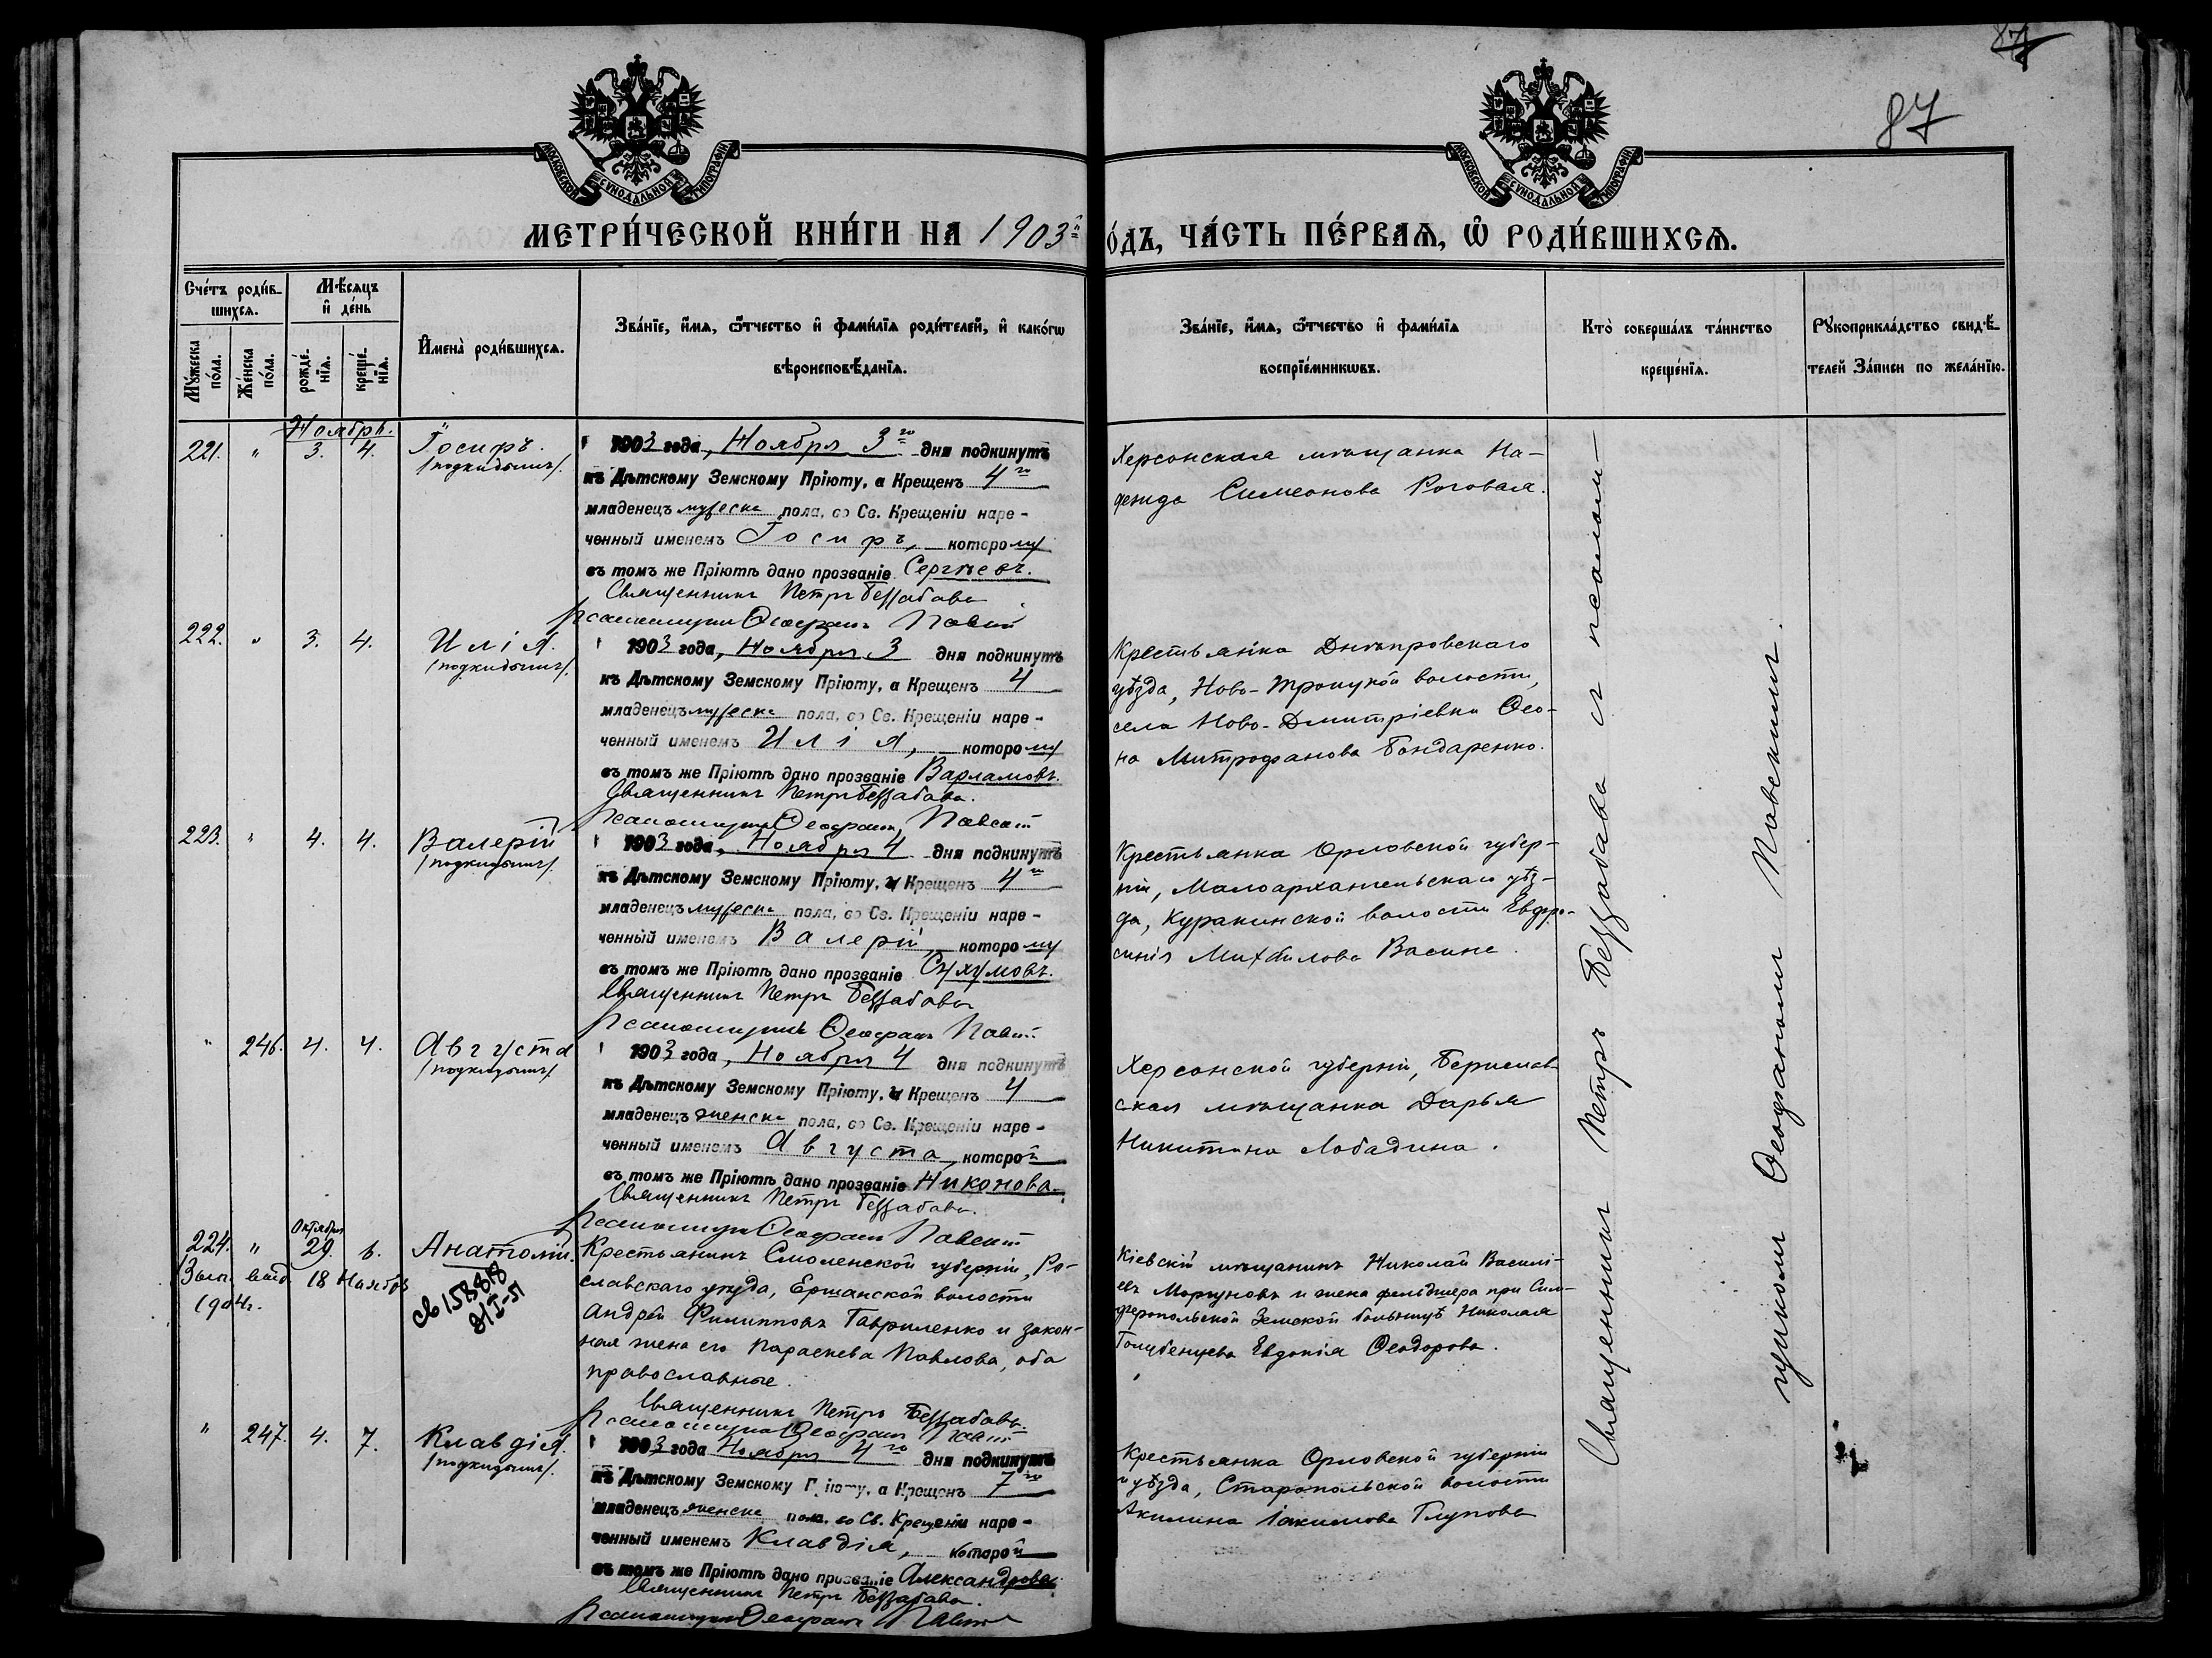 87
87
МОСКОВСКОЙ СѴНОДАЛЬНОЙ ТИПОГРАФІИ
МОСКОВСКОЙ СѴНОДАЛЬНОЙ ТИПОГРАФІИ
МЕТРИ́ЧЕСКОЙ КНИ́ГИ НА 1903й
О́ДЪ, ЧА́СТЬ ПЕ́РВАѦ, Ѽ РОДИ́ВШИХСѦ.
Сче́тъ роди́в-
шихсѧ.
Мꙋ́жеска по́ла.
Же́нска по́ла.
Мѣ́сѧцъ
и҆ де́нь
рожде́-
нїѧ.
креще́-
нїѧ.
И҆мена̀ роди́вшихсѧ.
Зва́нїе, и҆́мѧ, ѻ҆́тчество и҆ фами́лїѧ роди́телей, и҆ како́гѡ
вѣроисповѣ́данїѧ.
Зва́нїе, и҆́мѧ, ѻ҆́тчество и҆ фами́лїѧ
воспрїе́мникѡвъ.
Кто̀ соверша́лъ та́инство
креще́нїѧ.
Рꙋкоприкла́дство свидѣ́-
телей За́писи по жела́нїю.
Ноябрь.
221. " 3. 4. Іосифъ.
/подкидышъ/.
1903 года, Ноября 3го дня подкинутъ
къ Дѣтскому Земскому Пріюту, а Крещенъ 4го
младенецъ мужеска пола, во Св. Крещеніи наре-
ченный именемъ Іосифъ, которому
въ томъ же Пріютѣ дано прозваніе Сергѣевъ.
Священникъ Петръ Беззабава
Псаломщикъ Ѳеофанъ Павскій
Херсонская мѣщанка На-
дежда Симеонова Роговая.
222. " 3. 4. Илія.
/подкидышъ/.
1903 года, Ноября 3 дня подкинутъ
къ Дѣтскому Земскому Пріюту, а Крещенъ 4
младенецъ мужеска пола, во Св. Крещеніи наре-
ченный именемъ Илія, которому
въ томъ же Пріютѣ дано прозваніе Варламовъ.
Священникъ Петръ Беззабава.
Псаломщикъ Ѳеофанъ Павскій
Крестьянка Днѣпровскаго
уѣзда, Ново-Троицкой волости,
села Ново-Дмитріевки Ѳео-
на Митрофанова Бондаренко.
223. " 4. 4. Валерій
/подкидышъ/.
1903 года, Ноября 4 дня подкинутъ
къ Дѣтскому Земскому Пріюту, и Крещенъ 4го
младенецъ мужеска пола, во Св. Крещеніи наре-
ченный именемъ Валерій, которому
въ томъ же Пріютѣ дано прозваніе Сухумовъ.
Священникъ Петръ Беззабава
Псаломщикъ Ѳеофанъ Павскій
Крестьянка Орловской губер-
ніи, Малоархангельскаго уѣз-
да, Куракинской волости Евфро-
синія Михайлова Васина.
" 246. 4. 4. Августа
/подкидышъ/.
1903 года, Ноября 4 дня подкинутъ
къ Дѣтскому Земскому Пріюту, и Крещенъ 4
младенецъ женска пола, во Св. Крещеніи наре-
ченный именемъ Августа, которой
въ томъ же Пріютѣ дано прозваніе Никонова.
Священникъ Петръ Беззабава.
Псаломщикъ Ѳеофанъ Павскій
Херсонской губерніи, Берислав-
ская мѣщанка Дарья
Никитина Лободина.
Октября
224. " 29. 6. Анатолій.
Вып. выд. 18 Ноября
1904г.
св 158818
2/I-51
Крестьянинъ Смоленской губерніи, Ро-
славскаго уѣзда, Ершанской волости
Андрей Филипповъ Гавриленко и закон-
ная жена его Параскева Павлова, оба
православные.
Священникъ Петръ Беззабава.
Псаломщикъ Ѳеофанъ Павскій
Кіевскій мѣщанинъ Николай Василі-
евъ Моргуновъ и жена фельдшера при Сим-
феропольской Земской больницѣ Николая
Голубенцева Евдокія Ѳеодорова.
" 247. 4. 7. Клавдія.
/подкидышъ/.
1903 года Ноября 4го дня подкинутъ
къ Дѣтскому Земскому Пріюту, а Крещенъ 7го
младенецъ женска пола, во Св. Крещеніи наре-
ченный именемъ Клавдія, которой
въ томъ же Пріютѣ дано прозваніе Александрова.
Священникъ Петръ Беззабава.
Псаломщикъ Ѳеофанъ Павскій
Крестьянка Орловской губерніи
и уѣзда, Старопольской волости
Акилина Іакимова Глупова
Священникъ Петръ Беззабава и псалом-
щикомъ Ѳеофаномъ Павскимъ.